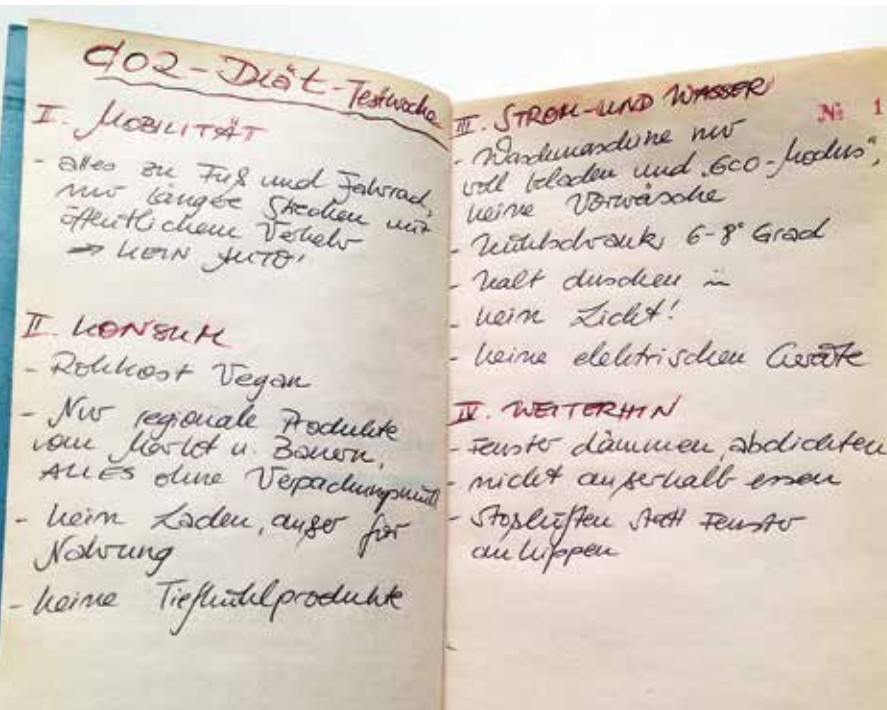 CO2-Diät-Testwoche
I. MOBILITÄT
- alles zu Fuß und Fahrrad,
nur längere Strecken mit
öffentlichem Verkehr
→ KEIN AUTO!
II. KONSUM
- Rohkost Vegan
- Nur regionale Produkte
vom Markt u. Bauern,
ALLES ohne Verpackungsmüll
- kein Laden, außer für
Nahrung
- keine Tiefkühlprodukte
III. STROM-UND WASSER
- Waschmaschine nur
voll beladen und "Eco-Modus",
keine Vorwäsche
- Kühlschrank, 6-8° Grad
- kalt duschen
- kein Licht!
- keine elektrischen Geräte
IV. WEITERHIN
- Fenster dämmen, abdichten
- nicht außerhalb essen
- Stoßlüften statt Fenster
ankippen
№ 1